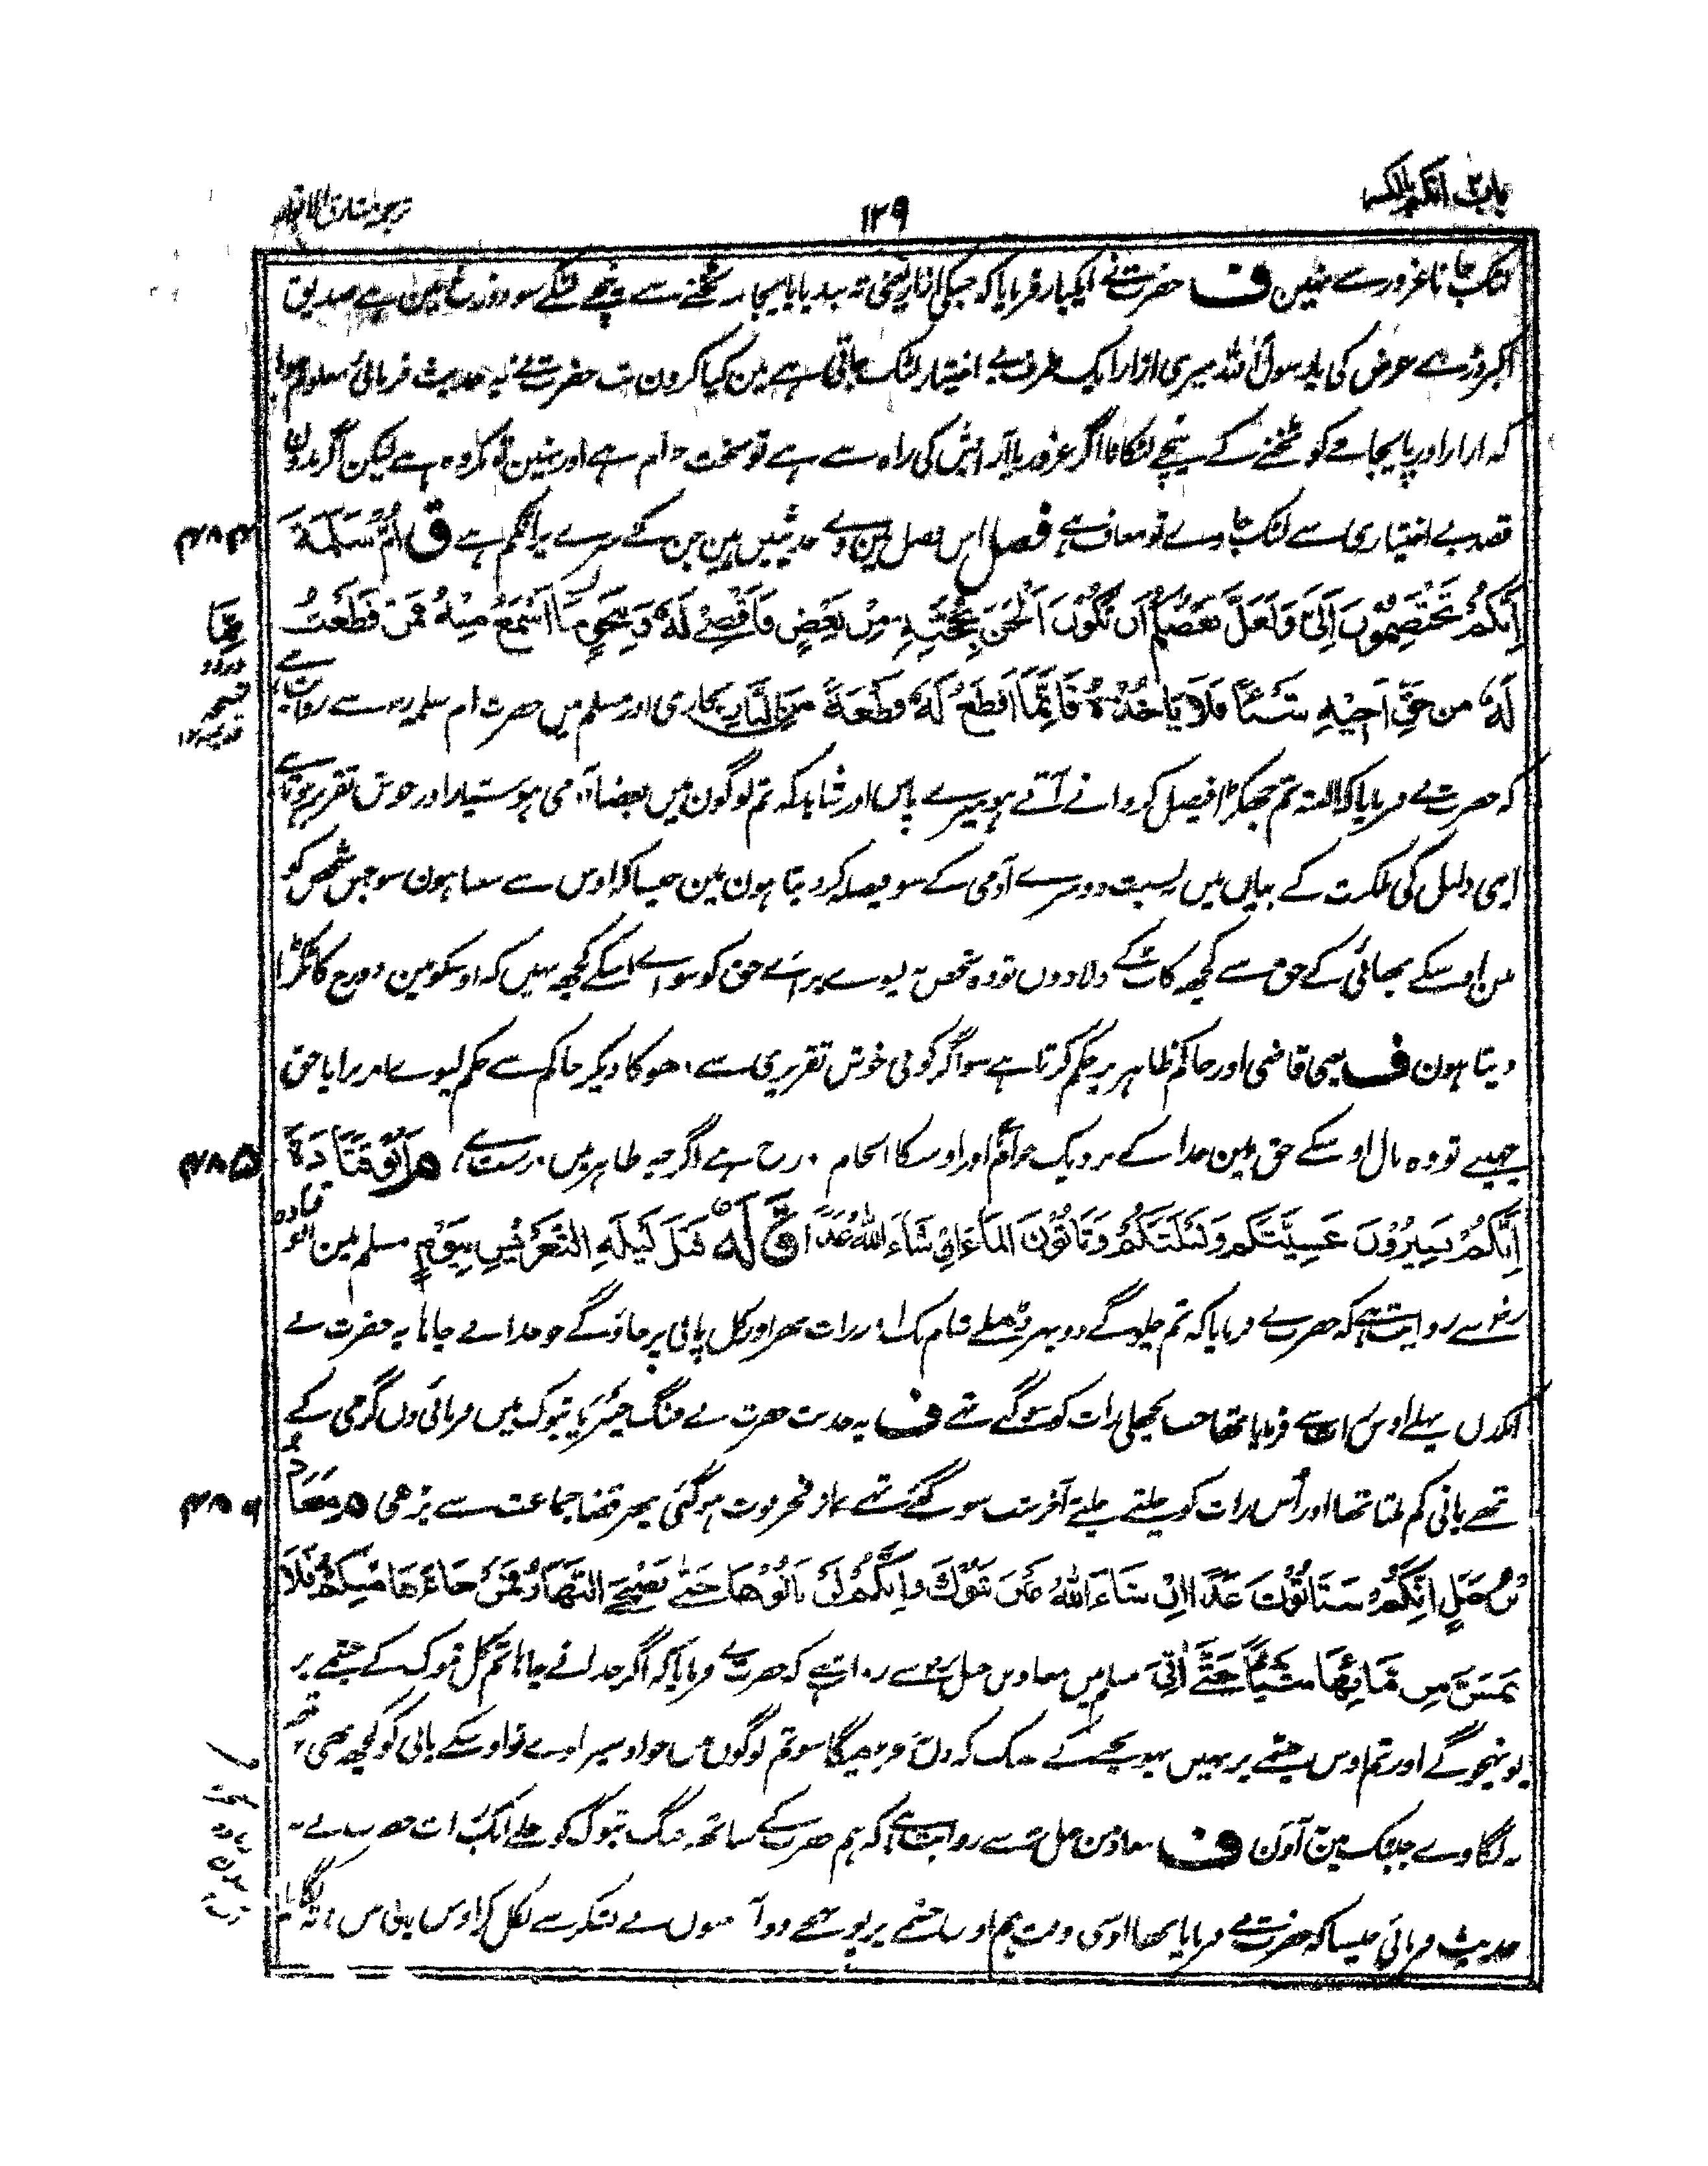 ۱۲۹
لٹک جانا غرور سے نہیں ف حضرت نے ایکبار فرمایا کہ جسکی ازار یعنی تہ بند یا پایجامہ ٹخنے سے نیچے لٹکے سو دوزخ میں ہے صدیق
اکبرؓ نے عرض کی یا رسول اللہ میری ازار ایک طرف بے اختیار لٹک جاتی ہے مین کیا کرون تب حضرت نے یہ حدیث فرمائی معلوم ہوا
کہ ازار اور پایجامے کو ٹخنے کے نیچے لٹکانا اگر غرور یا آرایش کی راہ سے ہے تو سخت حرام ہے اور نہین تو مکروہ ہے لیکن اگر بدون
قصد بے اختیاری سے لٹک جاوے تو معاف ہے فصل اس فصل مین وے حدیثیں ہین جن کے سرے پر انکم ہے ق اُمُّ سَلَمَةَ
۴۸۴
اِنَّكُمْ تَخْتَصِمُوْنَ اِلَیَّ وَلَعَلَّ بَعْضَكُمْ اَنْ يَّكُوْنَ اَلْحَنَ بِحُجَّتِهٖ مِنْ بَعْضٍ فَاَقْضِیَ لَهٗ نَحْوِ مَّا اَسْمَعُ مِنْهُ فَمَنْ قَطَعْتُ
لَهٗ من حَقِّ اَخِيْهِ شَيْئًا فَلَا يَاْخُذْهُ فَاِنَّمَا اَقْطَعُ لَهٗ قِطْعَةً مِّنَ النَّارِ بخاری اور مسلم میں حضرت ام سلمہ رض سے روایت ہے
کہ حضرت نے فرمایا کہ البتہ تم جھگڑا فیصل کروانے آتے ہو میرے پاس اور شاید کہ تم لوگون میں بعضا آدمی ہوشیار اور خوش تقریر ہوتا ہے
اپنی دلیل کی حکمت کے بیان میں بہ نسبت دوسرے آدمی کے سو فیصلہ کر دیتا ہون مین جیسا کہ اوس سے سنتا ہون سو جس شخص کو
مین اوسکے بھائی کے حق سے کچھ کاٹ کے دلا دوں تو وہ شخص نہ لیوے پرائے حق کو سواے اسکے کچھ نہیں کہ اوسکو مین دوزخ کا ٹکڑا
دیتا ہون ف یعنی قاضی اور حاکم ظاہر پر حکم کرتا ہے سو اگر کوئی خوش تقریری سے دھوکا دیکر حاکم سے حکم لیوے اور پرایا حق
چھینے تو وہ مال اوسکے حق مین خدا کے نزدیک حرام اور اوسکا انجام دوزخ ہے اگرچہ ظاہر میں درست ہے م اَبُوْ قَتَادَةَ
۴۸۵
اِنَّكُمْ تَسِيْرُوْنَ عَشِيَّتَكُمْ وَلَيْلَتَكُمْ وَتَاْتُوْنَ الْمَاءَ اِنْ شَاءَ اللّٰهُ غَدًا قَالَهٗ قَبْلَ لَيْلَةِ التَّعْرِيْسِ بِيَوْمٍ مسلم مین ابو قتادہ
رض سے روایت ہے کہ حضرت نے فرمایا کہ تم چلوگے دوپہر ڈھلے شام تک اور رات بھر اور کل پانی پر جاؤگے جو خدا نے چاہا یہ حضرت نے
ایکدن پہلے اوس رات سے فرمایا تھا جب پچھلی رات کو سو گئے تھے ف یہ حدیث حضرت نے جنگ خیبر یا تبوک میں فرمائی دن گرمی کے
تھے پانی کم ملتا تھا اور اُس رات کو چلتے چلتے آخر شب سو گئے تھے نماز فجر فوت ہو گئی پھر قضا جماعت سے پڑھی م مُعَاذُ
۴۸۶
بْنُ جَبَلٍ اِنَّكُمْ سَتَاْتُوْنَ غَدًا اِنْ شَاءَ اللّٰهُ عَيْنَ تَبُوْكَ وَاِنَّكُمْ لَنْ تَاْتُوْهَا حَتّٰى يَضْحَى النَّهَارُ فَمَنْ جَاءَهَا مِنْكُمْ فَلَا
يَمَسَّ مِنْ مَّائِهَا شَيْئًا حَتّٰى اٰتِیَ مسلم میں معاذ بن جبل رض سے روایت ہے کہ حضرت نے فرمایا کہ اگر خدا نے چاہا تم کل تبوک کے چشمے پر
پونہچوگے اور تم اوس چشمے پر نہیں پہونچنے کے جب تک کہ دن نہ چڑھیگا سو تم لوگوں میں جو اوسپر آوے تو اوسکے پانی کو کچھ بھی
نہ لگاوے جبتک مین آون ف معاذ بن جبل رض سے روایت ہے کہ ہم حضرت کے ساتھ جنگ تبوک کو چلے ایک رات حضرت نے یہ
حدیث فرمائی جیسا کہ حضرت نے فرمایا تھا اوسی وقت ہم اوس چشمے پر پونہچے دو آدمیوں نے لشکر سے نکل کر اوس پانی میں